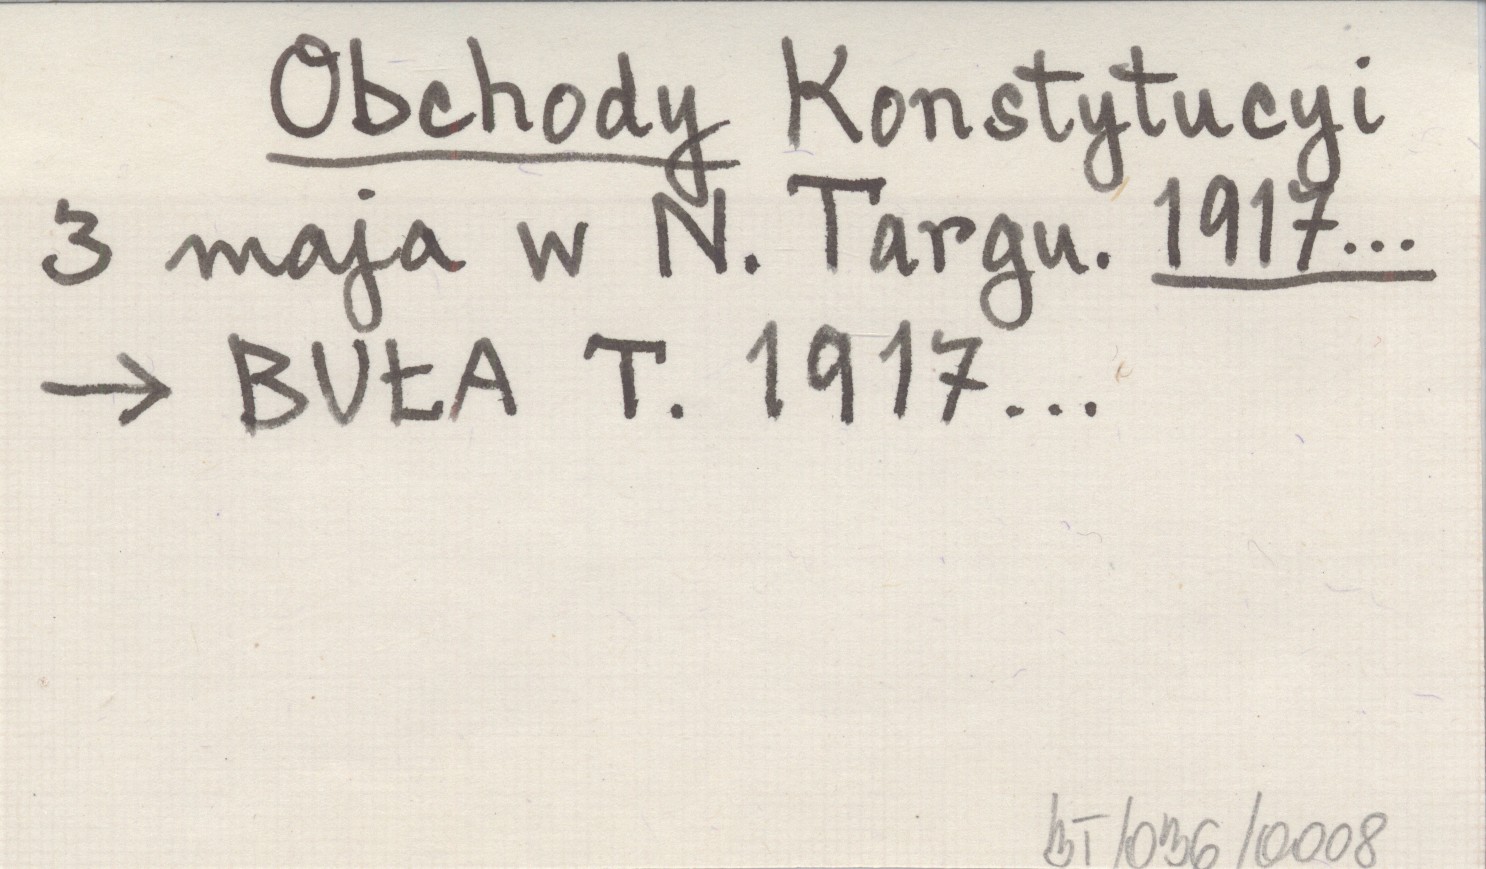 Obchody Konstytucyi
3 maja w N. Targu. 1917...
→ BUŁA T. 1917...
BT/036/0008